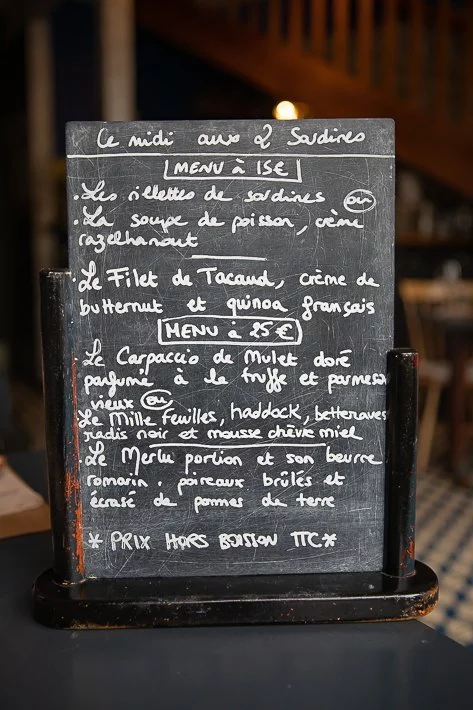 Ce midi aux 2 Sardines
MENU à 15€
• Les rillettes de sardines ou
• La soupe de poisson, crème
razelhanout
Le Filet de Tacaud, crème de
butternut et quinoa français
MENU à 25€
Le Carpaccio de Mulet doré
parfumé à la truffe et parmesan
vieux ou
Le Mille Feuilles, haddock, betteraves
radis noir et mousse chèvre miel
Le Merlu portion et son beurre
romarin, poireaux brûlés et
écrasé de pommes de terre
* PRIX HORS BOISSON TTC*